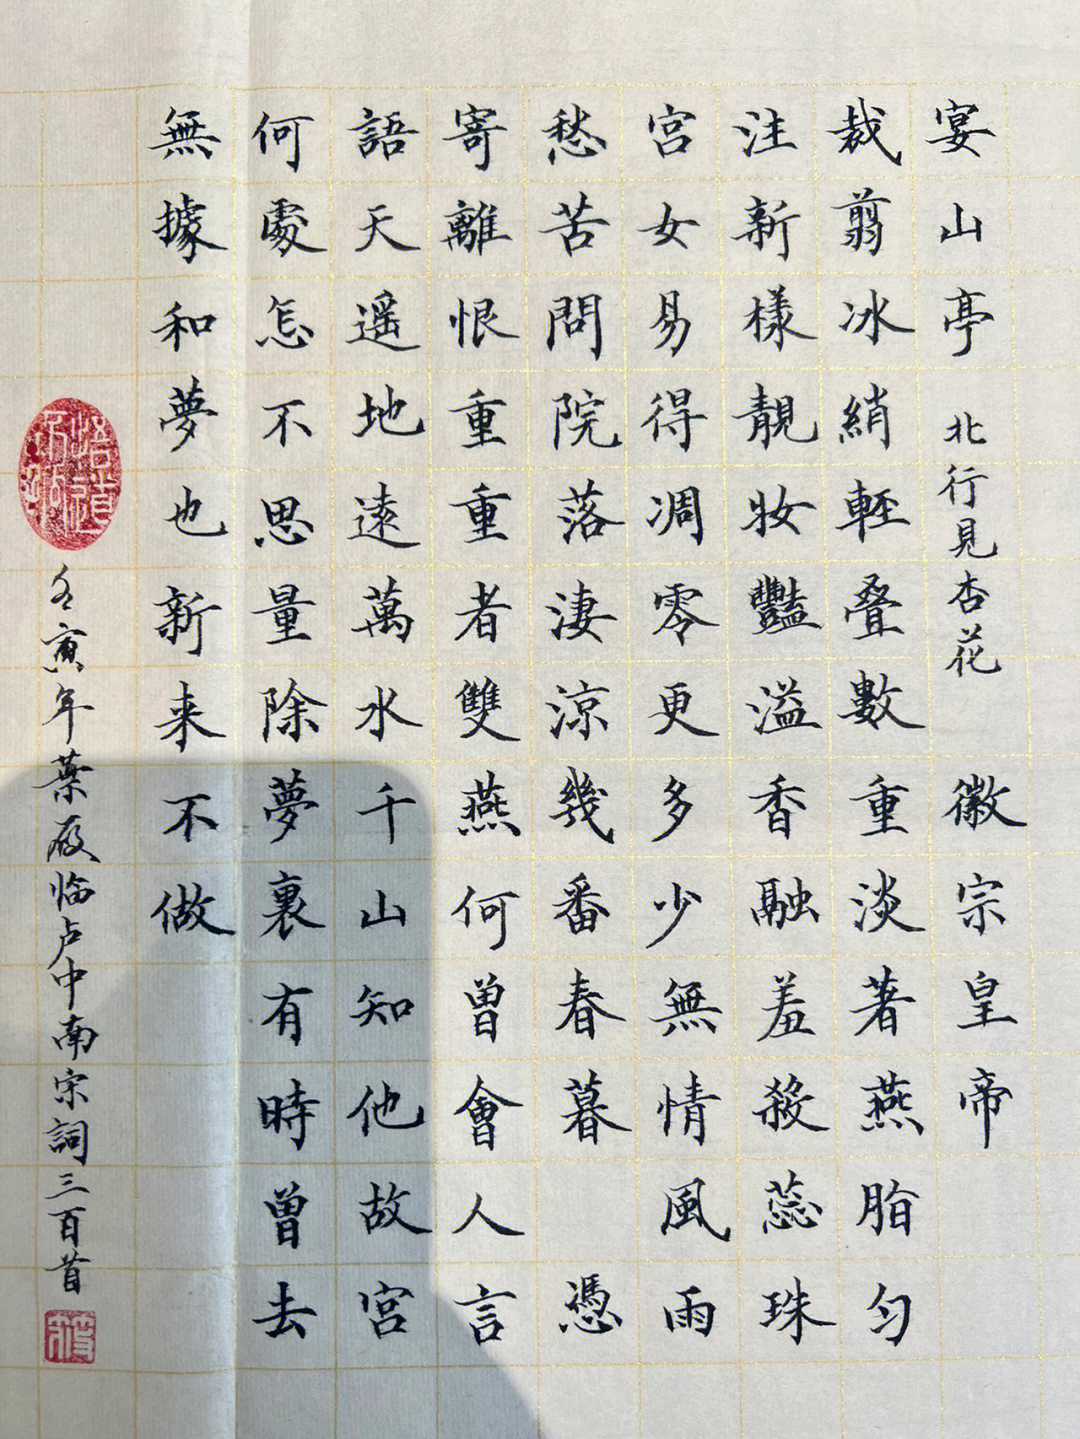 宴山亭 北行見杏花 徽宗皇帝
裁翦冰綃輕叠數重淡著燕脂匀
注新樣靚妝豔溢香融羞殺蕊珠
宮女易得凋零更多少無情風雨
愁苦問院落淒涼幾番春暮 憑
寄離恨重重者雙燕何曾會人言
語天遥地遠萬水千山知他故宮
何處怎不思量除夢裏有時曾去
無據和夢也新来不做
寅年葉临卢中南宋詞三百首